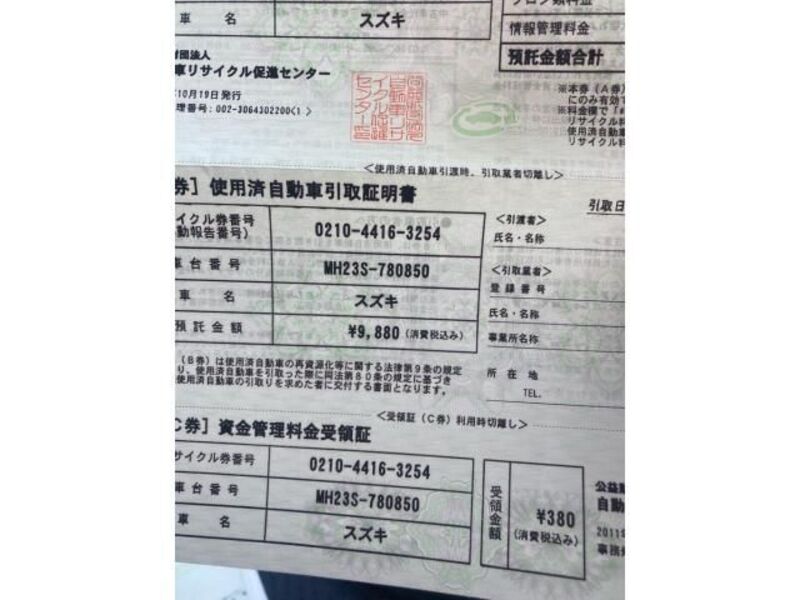 車 名
スズキ
情報管理料金
預託金額合計
財団法人
車リサイクル促進センター
10月19日発行
理番号: 002-3064302200<1>
※本券(A券)
にのみ有効で
リサイクル料
使用済自動車
リサイクル料
<使用済自動車引渡時、引取業者切離し>
券] 使用済自動車引取証明書
引取日
イクル券番号
動報告番号)
0210-4416-3254
車台番号
MH23S-780850
車 名
スズキ
預託金額
¥9,880 (消費税込み)
<引渡者>
氏名・名称
<引取業者>
登録番号
氏名・名称
事業所名称
所在地
TEL.
(B券)は使用済自動車の再資源化等に関する法律第9条の規定
り、使用済自動車を引取った際に同法第80条の規定に基づき
使用済自動車の引取りを求めた者に交付する書面となります。
<受領証(C券)利用時切離し>
C券] 資金管理料金受領証
サイクル券番号
0210-4416-3254
車台番号
MH23S-780850
車 名
スズキ
受領金額
¥380
(消費税込み)
公益
自動
2011
事務